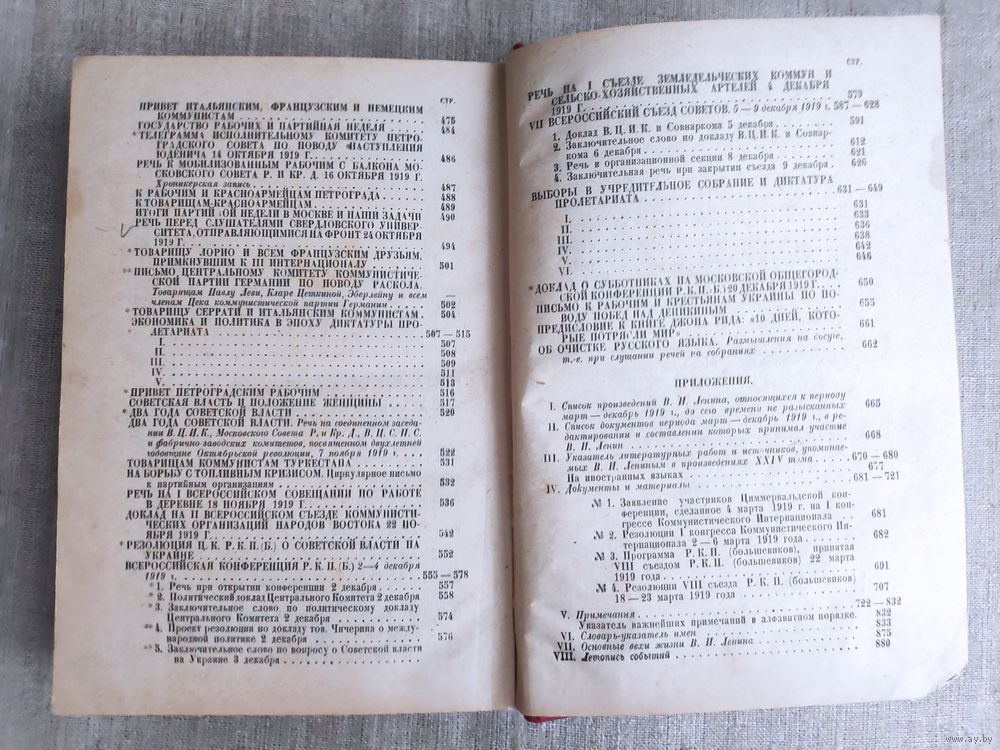 СТР.
ПРИВЕТ ИТАЛЬЯНСКИМ, ФРАНЦУЗСКИМ И НЕМЕЦКИМ
КОММУНИСТАМ 475
ГОСУДАРСТВО РАБОЧИХ И ПАРТИЙНАЯ НЕДЕЛЯ 484
*ТЕЛЕГРАММА ИСПОЛНИТЕЛЬНОМУ КОМИТЕТУ ПЕТРО-
ГРАДСКОГО СОВЕТА ПО ПОВОДУ НАСТУПЛЕНИЯ
ЮДЕНИЧА 14 ОКТЯБРЯ 1919 Г. 486
РЕЧЬ К МОБИЛИЗОВАННЫМ РАБОЧИМ С БАЛКОНА МО-
СКОВСКОГО СОВЕТА Р. И КР. Д. 16 ОКТЯБРЯ 1919 Г.
Хроникерская запись 487
К РАБОЧИМ И КРАСНОАРМЕЙЦАМ ПЕТРОГРАДА 488
К ТОВАРИЩАМ-КРАСНОАРМЕЙЦАМ 489
ИТОГИ ПАРТИЙ ОЙ НЕДЕЛИ В МОСКВЕ И НАШИ ЗАДАЧИ 490
РЕЧЬ ПЕРЕД СЛУШАТЕЛЯМИ СВЕРДЛОВСКОГО УНИВЕР-
СИТЕТА, ОТПРАВЛЯЮЩИМИСЯ НА ФРОНТ 24 ОКТЯБРЯ
1919 Г. 494
*ТОВАРИЩУ ЛОРИО И ВСЕМ ФРАНЦУЗСКИМ ДРУЗЬЯМ,
ПРИМКНУВШИМ К III ИНТЕРНАЦИОНАЛУ 501
**ПИСЬМО ЦЕНТРАЛЬНОМУ КОМИТЕТУ КОММУНИСТИЧЕ-
СКОЙ ПАРТИИ ГЕРМАНИИ ПО ПОВОДУ РАСКОЛА.
Товарищам Паулу Леви, Кларе Цеткиной, Эберлейну и всем
членам Цека коммунистической партии Германии 502
*ТОВАРИЩУ СЕРРАТИ И ИТАЛЬЯНСКИМ КОММУНИСТАМ 504
ЭКОНОМИКА И ПОЛИТИКА В ЭПОХУ ДИКТАТУРЫ ПРО-
ЛЕТАРИАТА 507—515
I. 507
II. 508
III. 509
IV. 511
V. 513
*ПРИВЕТ ПЕТРОГРАДСКИМ РАБОЧИМ 516
СОВЕТСКАЯ ВЛАСТЬ И ПОЛОЖЕНИЕ ЖЕНЩИНЫ 517
*ДВА ГОДА СОВЕТСКОЙ ВЛАСТИ 520
ДВА ГОДА СОВЕТСКОЙ ВЛАСТИ. Речь на соединенном заседа-
нии В.Ц.И.К., Московского Совета Р. и Кр. Д., В.Ц.С.П.С.
и фабрично-заводских комитетов, посвященном двухлетней
годовщине Октябрьской революции, 7 ноября 1919 г. 522
ТОВАРИЩАМ КОММУНИСТАМ ТУРКЕСТАНА 531
НА БОРЬБУ С ТОПЛИВНЫМ КРИЗИСОМ. Циркулярное письмо
к партийным организациям 532
РЕЧЬ НА I ВСЕРОССИЙСКОМ СОВЕЩАНИИ ПО РАБОТЕ
В ДЕРЕВНЕ 18 НОЯБРЯ 1919 Г. 536
ДОКЛАД НА II ВСЕРОССИЙСКОМ СЪЕЗДЕ КОММУНИСТИ-
ЧЕСКИХ ОРГАНИЗАЦИЙ НАРОДОВ ВОСТОКА 22 НО-
ЯБРЯ 1919 Г. 542
*РЕЗОЛЮЦИЯ Ц. К. Р. К. П. (Б.) О СОВЕТСКОЙ ВЛАСТИ НА
УКРАИНЕ 552
ВСЕРОССИЙСКАЯ КОНФЕРЕНЦИЯ Р. К. П. (Б.) 2—4 декабря
1919 г. 555—578
*1. Речь при открытии конференции 2 декабря 557
*2. Политический доклад Центрального Комитета 2 декабря 558
*3. Заключительное слово по политическому докладу
Центрального Комитета 2 декабря 574
*4. Проект резолюции по докладу тов. Чичерина о между-
народной политике 2 декабря 576
*5. Заключительное слово по вопросу о Советской власти
на Украине 3 декабря
СТР.
РЕЧЬ НА I СЪЕЗДЕ ЗЕМЛЕДЕЛЬЧЕСКИХ КОММУН И
СЕЛЬСКО-ХОЗЯЙСТВЕННЫХ АРТЕЛЕЙ 4 ДЕКАБРЯ
1919 Г. 579
VII ВСЕРОССИЙСКИЙ СЪЕЗД СОВЕТОВ. 5—9 декабря 1919 г. 587—628
1. Доклад В. Ц. И. К. и Совнаркома 5 декабря 591
2. Заключительное слово по докладу В.Ц.И.К. и Совнар-
кома 6 декабря 612
3. Речь в организационной секции 8 декабря 621
4. Заключительная речь при закрытии съезда 9 декабря 626
ВЫБОРЫ В УЧРЕДИТЕЛЬНОЕ СОБРАНИЕ И ДИКТАТУРА
ПРОЛЕТАРИАТА 631—649
I. 631
II. 633
III. 636
IV. 638
V. 642
VI. 646
*ДОКЛАД О СУББОТНИКАХ НА МОСКОВСКОЙ ОБЩЕГОРОД-
СКОЙ КОНФЕРЕНЦИИ Р.К.П.(Б.) 20 ДЕКАБРЯ 1919 Г. 650
ПИСЬМО К РАБОЧИМ И КРЕСТЬЯНАМ УКРАИНЫ ПО ПО-
ВОДУ ПОБЕД НАД ДЕНИКИНЫМ 655
ПРЕДИСЛОВИЕ К КНИГЕ ДЖОНА РИДА: «10 ДНЕЙ, КОТО-
РЫЕ ПОТРЯСЛИ МИР» 661
ОБ ОЧИСТКЕ РУССКОГО ЯЗЫКА. Размышления на досуге,
т.-е. при слушании речей на собраниях 662
ПРИЛОЖЕНИЯ.
I. Список произведений В. И. Ленина, относящихся к периоду
март — декабрь 1919 г., до сего времени не разысканных 665
II. Список документов периода март — декабрь 1919 г., в ре-
дактировании и составлении которых принимал участие
В. И. Ленин 668
III. Указатель литературных работ и источников, упоминае-
мых В. И. Лениным в произведениях XXIV тома 670—680
На иностранных языках 677
IV. Документы и материалы 681—721
№ 1. Заявление участников Циммервальдской кон-
ференции, сделанное 4 марта 1919 г. на I кон-
грессе Коммунистического Интернационала 681
№ 2. Резолюции I конгресса Коммунистического Ин-
тернационала 2—6 марта 1919 года 682
№ 3. Программа Р. К. П. (большевиков), принятая
VIII съездом Р. К. П. (большевиков) 22 марта
1919 года 691
№ 4. Резолюции VIII съезда Р. К. П. (большевиков)
18—23 марта 1919 года 707
V. Примечания 722—832
Указатель важнейших примечаний в алфавитном порядке 832
VI. Словарь-указатель имен 833
VII. Основные вехи жизни В. И. Ленина 875
VIII. Летопись событий 880
www.ay.by